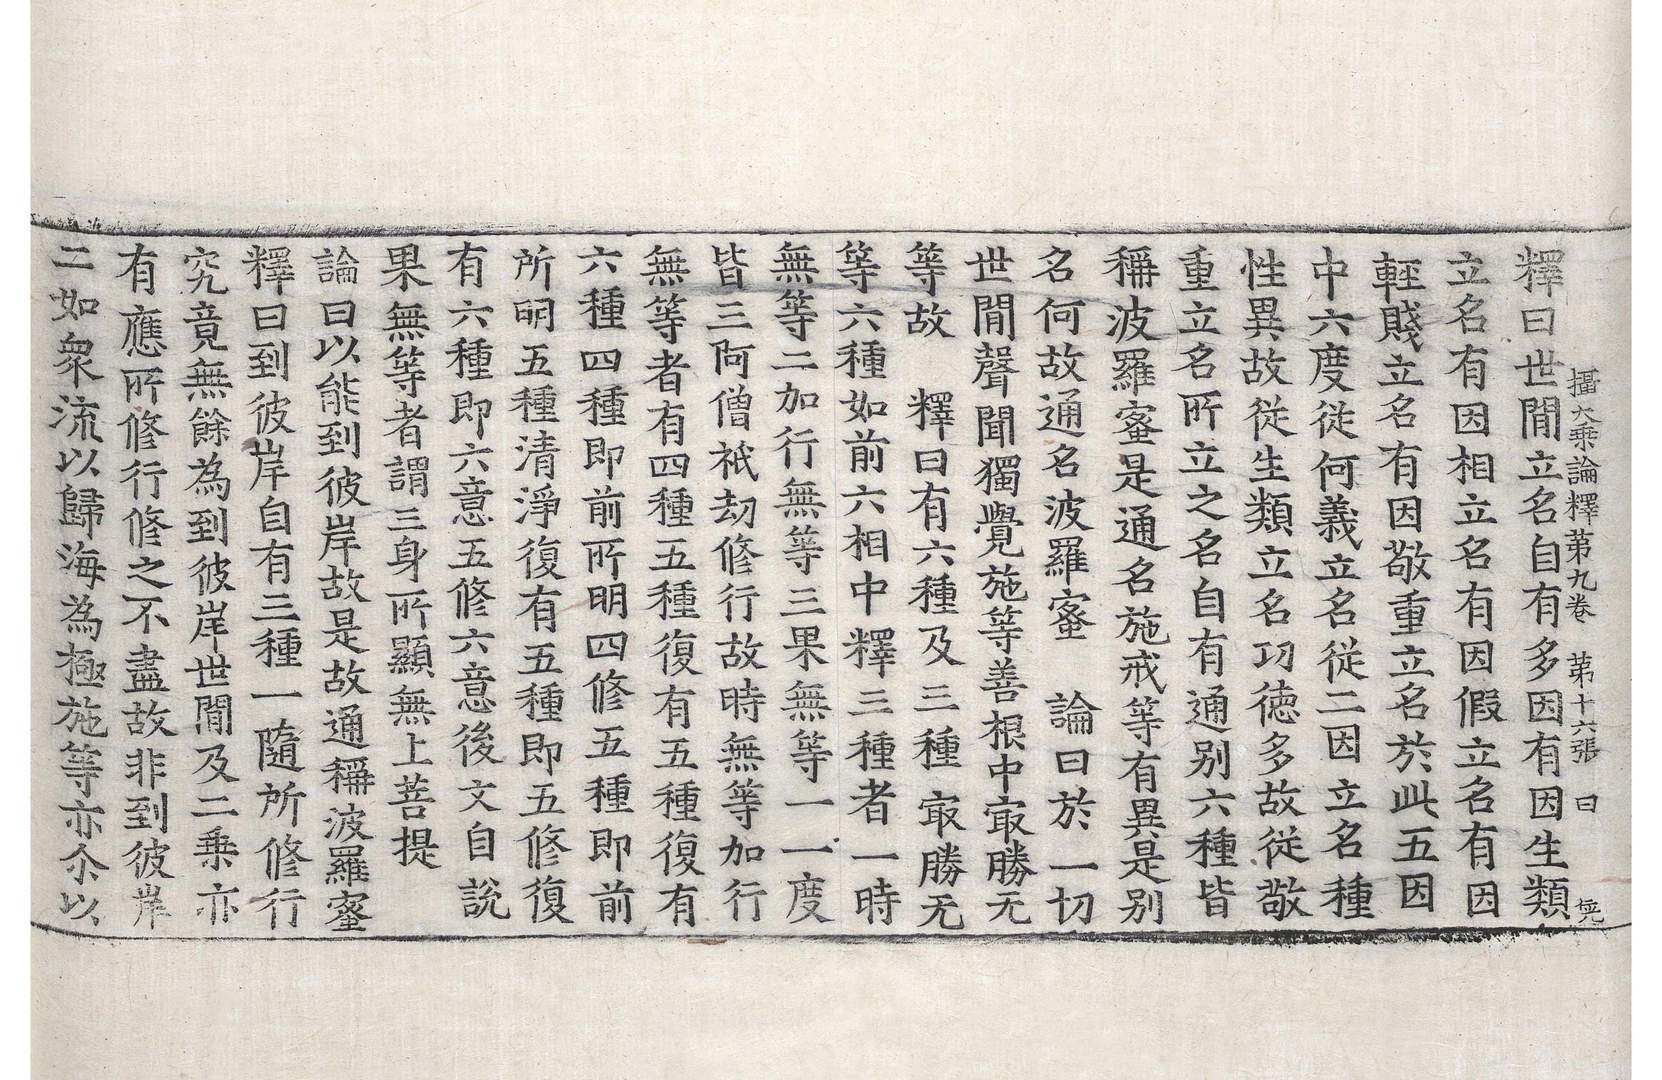 攝大乘論釋第九卷　第十六張　曰
釋曰世間立名自有多因有因生類
立名有因相立名有因假立名有因
輕賤立名有因敬重立名於此五因
中六度從何義立名從二因立名種
性異故從生類立名功德多故從敬
重立名所立之名自有通别六種皆
稱波羅蜜是通名施戒等有異是别
名何故通名波羅蜜　論曰於一切
世間聲聞獨覺施等善根中㝡勝无
等故　釋曰有六種及三種㝡勝无
等六種如前六相中釋三種者一時
無等二加行無等三果無等一一度
皆三阿僧祇劫修行故時無等加行
無等者有四種五種復有五種復有
六種四種即前所明四修五種即前
所明五種清淨復有五種即五修復
有六種即六意五修六意後文自說
果無等者謂三身所顯無上菩提
論曰以能到彼岸故是故通稱波羅蜜
釋曰到彼岸自有三種一隨所修行
究竟無餘為到彼岸世間及二乘亦
有應所修行修之不盡故非到彼岸
二如衆流以歸海為極施等亦尒以